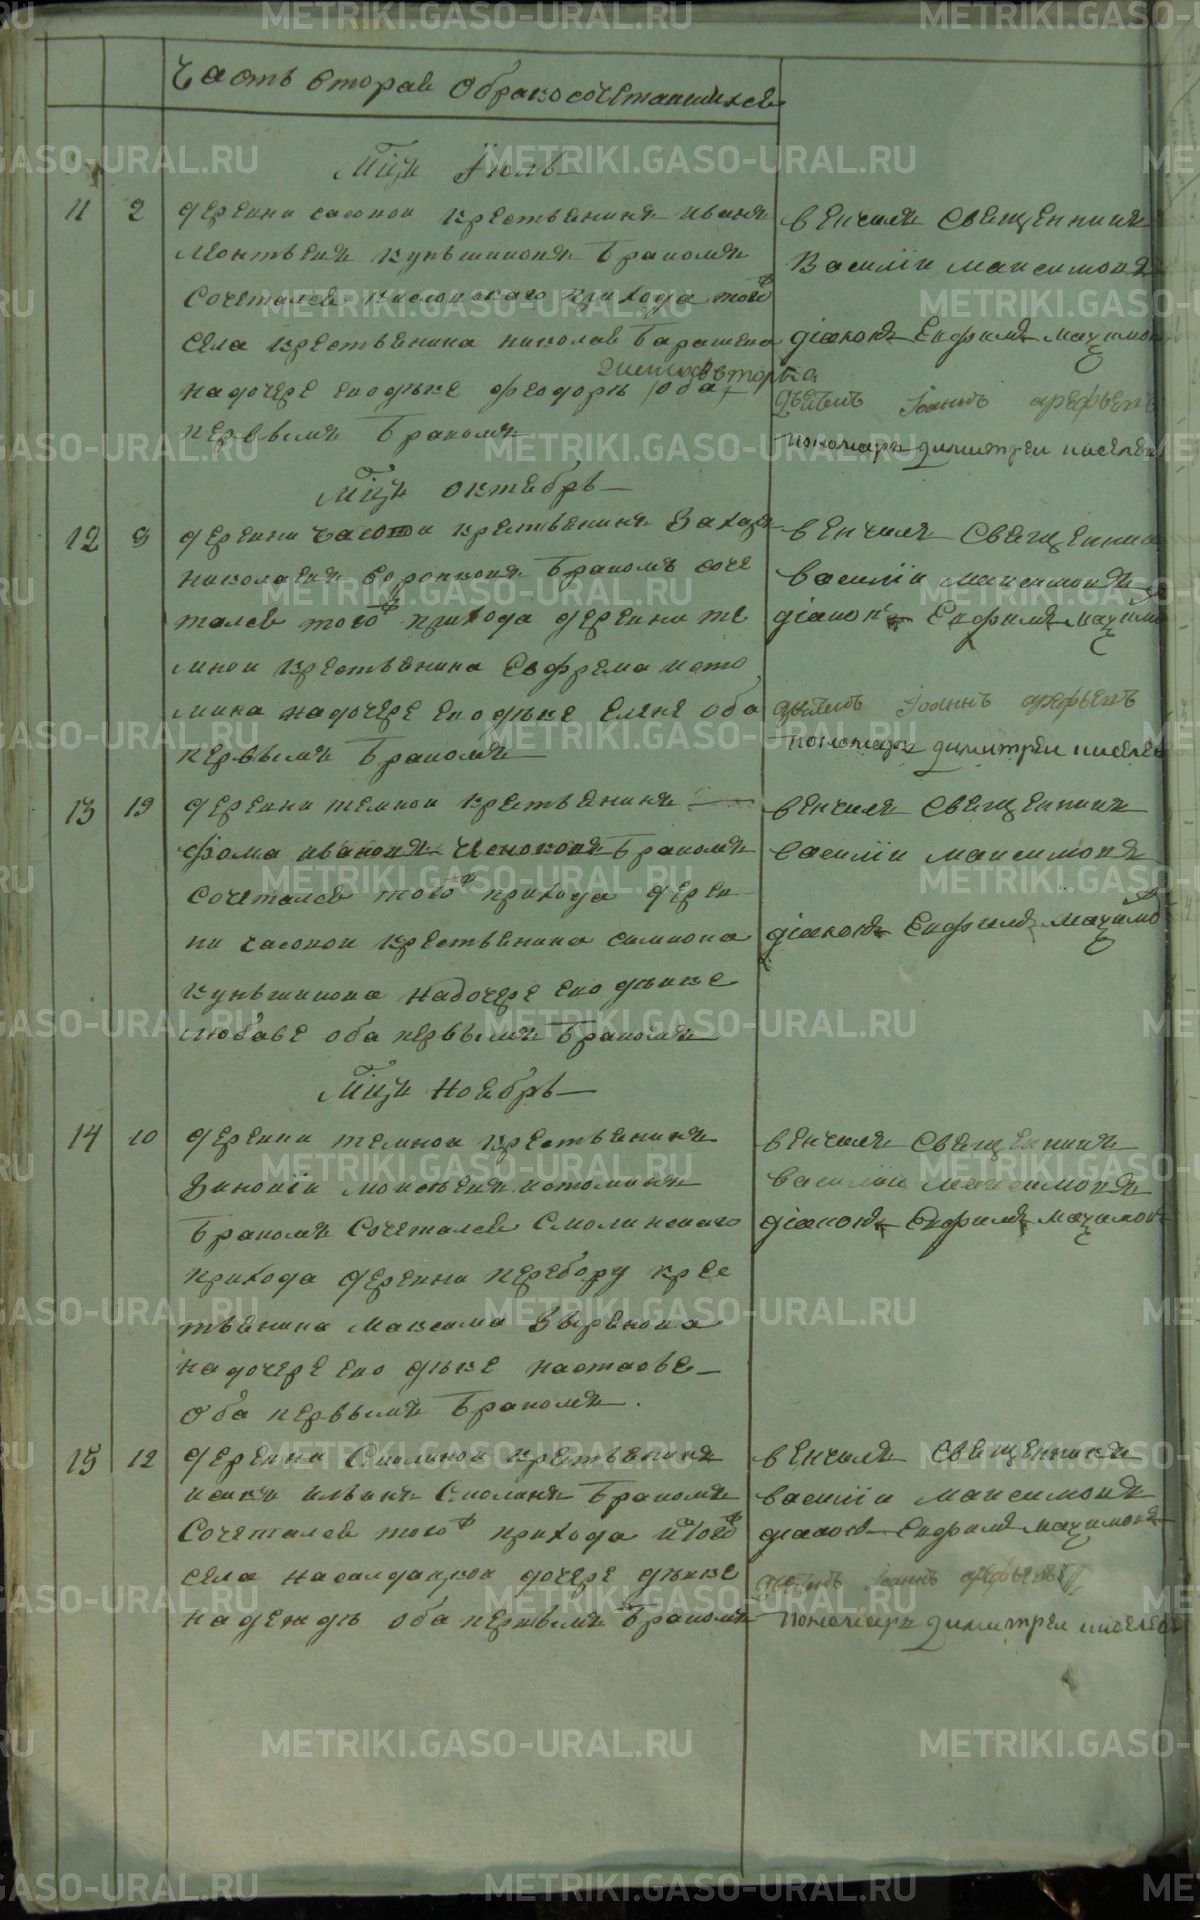 Часть вторая о бракосочетавшихся
Мцъ Июль
11 2 деревни часовой крестьянинъ Иванъ
Леонтьевъ Кунгинцовъ бракомъ
сочетался Кисловскаго прихода того
села крестьянина Николая
на дочере ево девке Феодоре оба
первымъ бракомъ
венчалъ священникъ
Василiи Максимовъ
дiаконъ Евфимъ
Iоаннъ Арефьевъ
пономарь Димитреи Киселев
Мцъ октябрь
12 9 деревни часовои крестьянинъ Захаръ
Николаевъ Воронковъ бракомъ соче
тался того прихода деревни те
мнои крестьянина Евфрема Исто
мина на дочере ево девке Елене оба
первымъ бракомъ
венчалъ священникъ
василiи Максимовъ
дiаконъ Евфимъ
Iоаннъ Арефьевъ
пономарь димитреи Киселев
13 19 деревни темнои крестьянинъ
Фома Ивановъ бракомъ
сочетался того прихода дерев
ни часовои крестьянина Симиона
на дочере ево девке
Любаве оба первымъ бракомъ
венчалъ священникъ
василiи Максимовъ
дiаконъ Евфимъ
Мцъ Ноябрь
14 10 деревни темнои крестьянинъ
Зиновiи Моисеевъ Истоминъ
бракомъ сочетался Смолинскаго
прихода деревни перебору крес
тьянина Максима Зырянова
на дочере ево девке Настасье
Оба первымъ бракомъ.
венчалъ священникъ
василiи Максимовъ
дiаконъ Евфимъ
15 12 деревни Смолинои крестьянинъ
Исакъ Ильинъ Смолинъ бракомъ
Сочетался того прихода и того
села на салдацкои дочере девке
надежде оба первымъ бракомъ
венчалъ священникъ
василiи Максимовъ
дiаконъ Евфимъ
Iоаннъ Арефьевъ
пономарь димитреи Киселев
METRIKI.GASO-URAL.RU